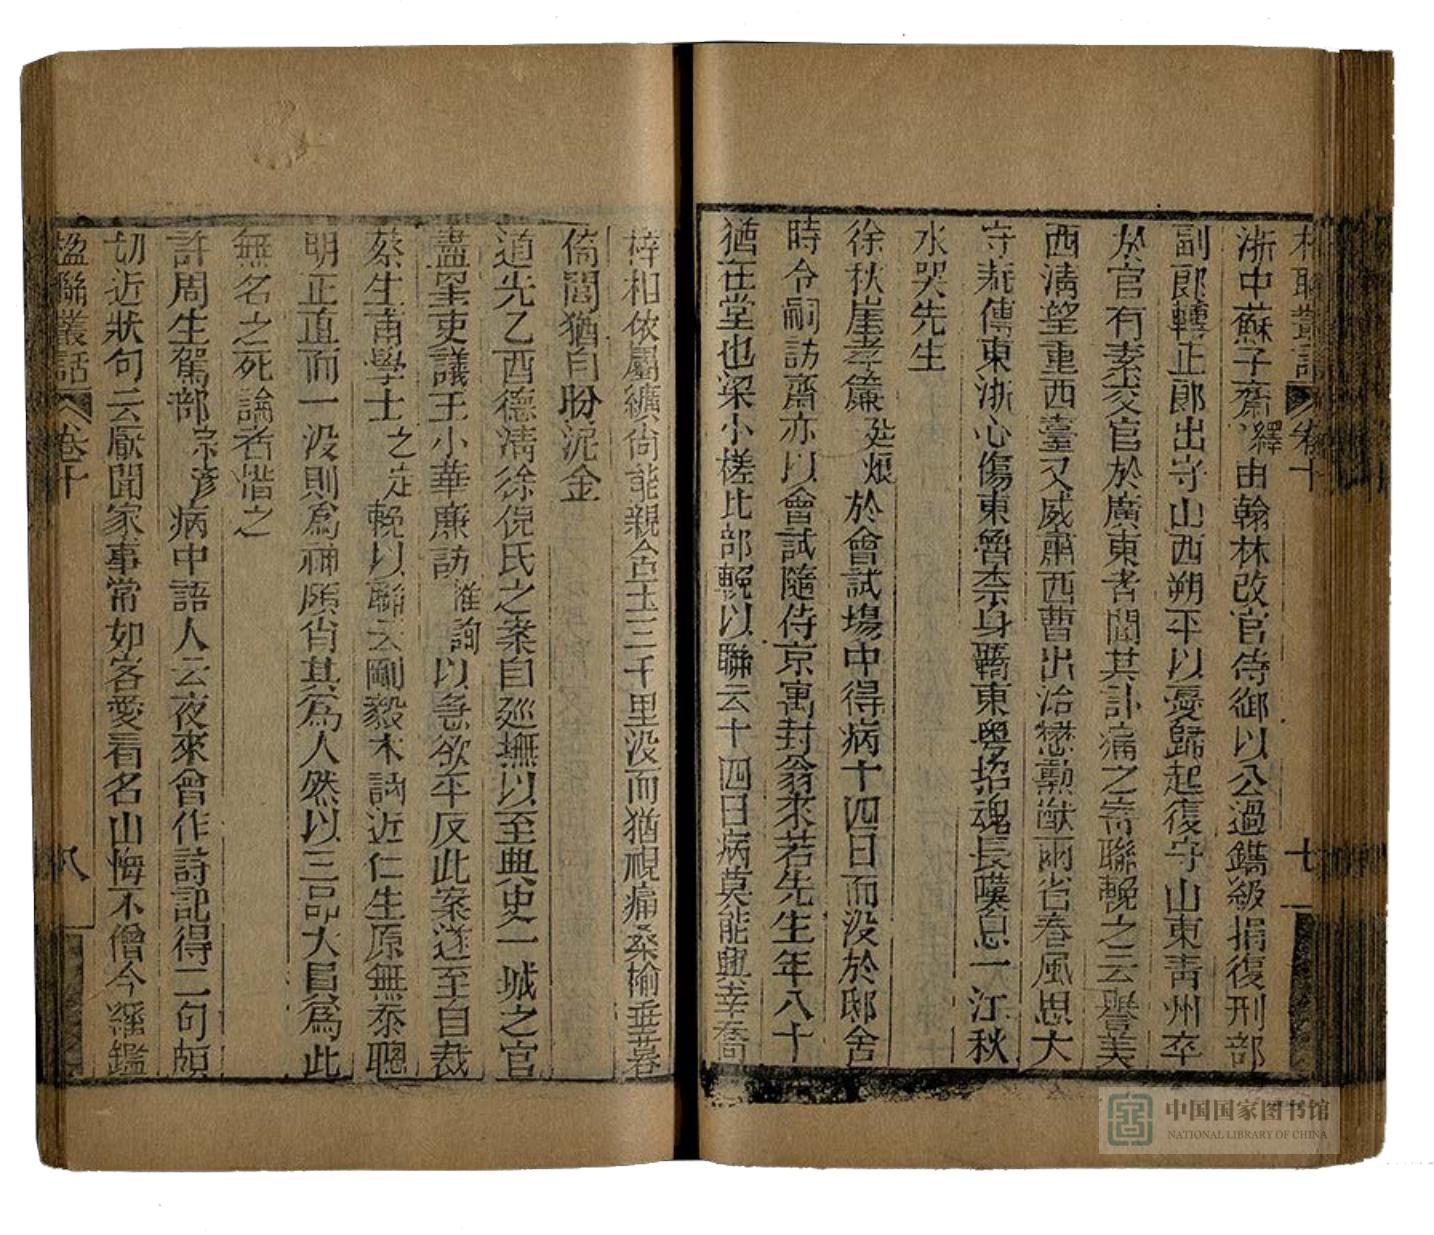 楹聯叢話 卷十 七
浙中蘇子齋繹由翰林改官侍御以公過鐫級捐復刑部
副郞轉正郞出守山西朔平以憂歸起復守山東靑州卒
於官有素交官於廣東者聞其訃痛之寄聯輓之云譽美
西淸望重西臺又威肅西曹出治懋勳猷雨省春風思大
守恭傳東浙心傷東魯柰身羈東粤招魂長嘆息一江秋
水哭先生
徐秋崖孝簾廷焜於會試場中得病十四日而没於邸舍
時令嗣訪齋亦以會試隨侍京寓封翁來若先生年八十
猶在堂也梁小槎比部輓以聯云十四日病莫能興幸喬
梓相依屬纊尙能親含玉三千里没而猶視痛桑榆垂暮
倚閭猶自盼泥金
道光乙酉德淸徐倪氏之案自廵撫以至典史一城之官
盡罣吏議王小華廉訪惟詢以急欲平反此案遂至自裁
蔡生甫學士之定輓以聯云剛毅木訥近仁生原無忝聰
明正直而一没則爲神頗肖其爲人然以三品大員爲此
無名之死論者惜之
許周生駕部宗彦病中語人云夜來曾作詩記得二句頗
切近狀句云厭聞家事常如客愛看名山悔不僧今羅鑑
楹聯叢話 卷十 八
中国国家图书馆
NATIONAL LIBRARY OF CHINA